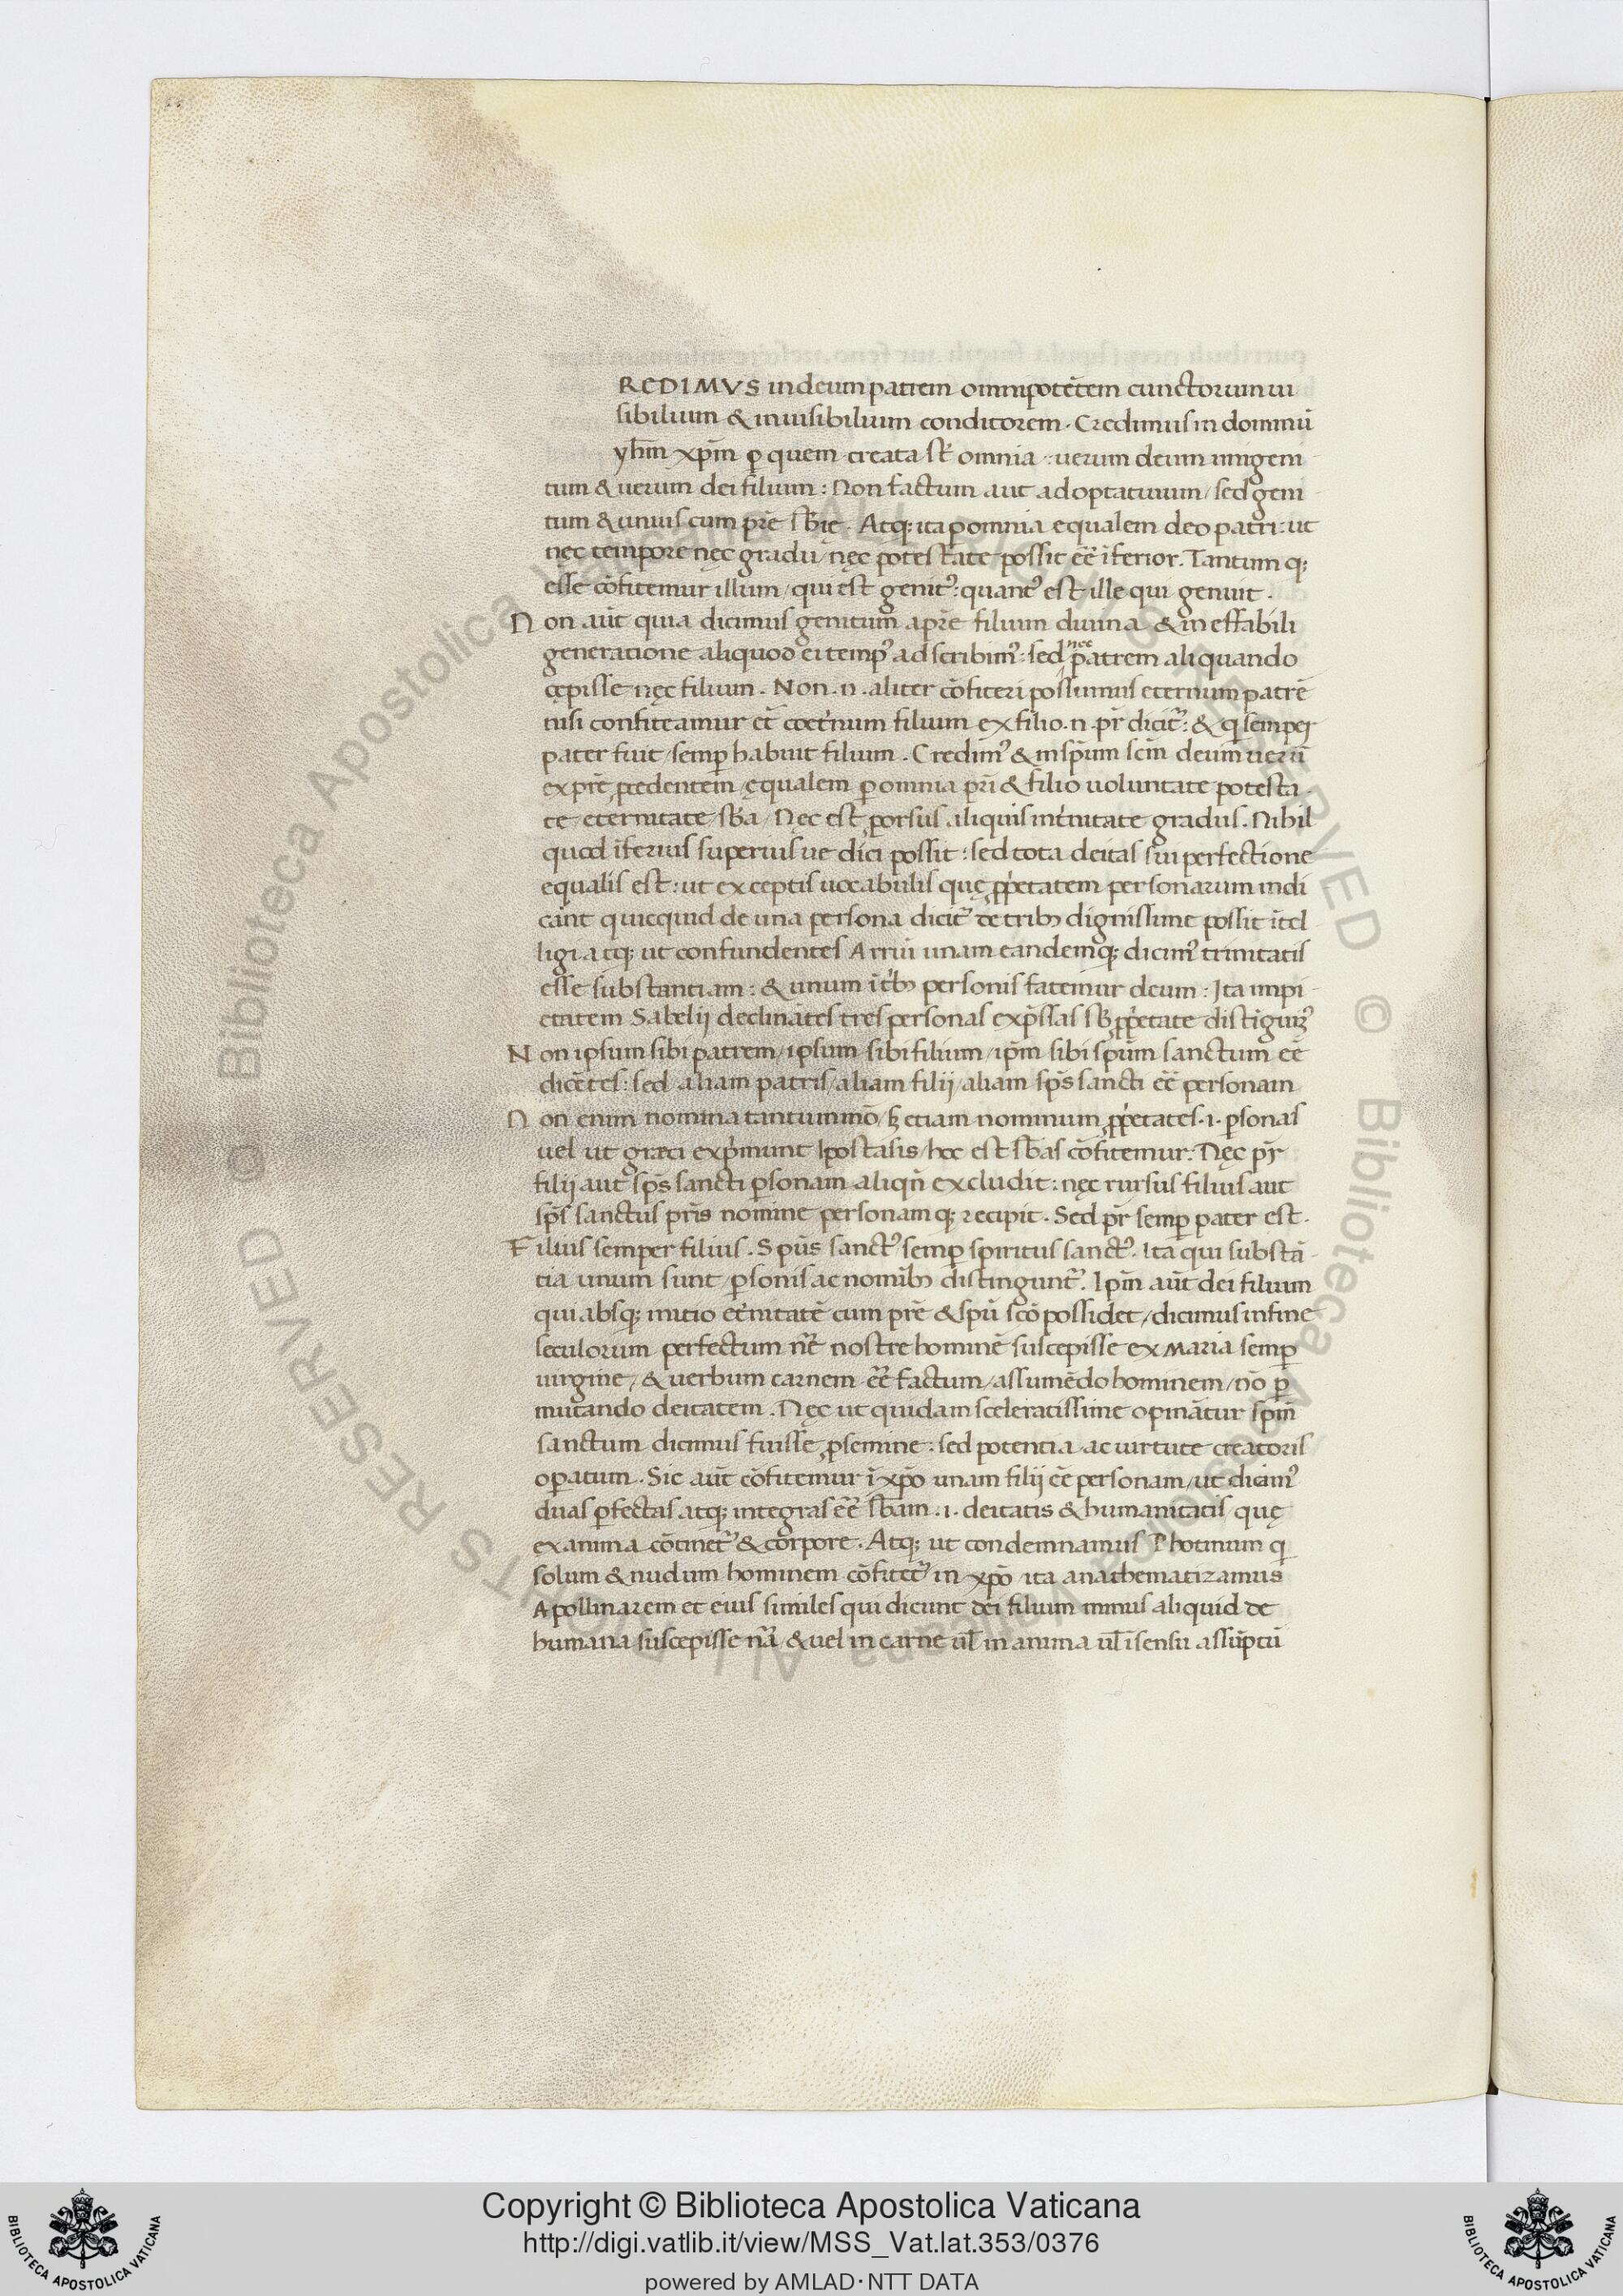 REDIMVS in deum patrem omnipotētem cunctorum ui
sibilium & inuisibilium conditorem. Credimus in dominū
yhm̄ xpm̄ ꝑ quem creata st̄ omnia: uerum deum unigeni
tum & uerum dei filium: Non factum aut adoptatiuum/ sed geni
tum & unius cum prē sb̄ię. Atq; ita ꝑ omnia equalem deo patri: ut
nęc tempore nęc gradu/ nęc potestate possit eē īferior. Tantum q;
esse cōfitemur illum/ qui est genitꝰ: quantꝰ est ille qui genuit.
Non aūt quia dicimus genitum a prē filium diuina & ineffabili
generatione aliquod ei tempꝰ adscribimꝰ: sed nec patrem aliquando
cępisse nęc filium. Non .n. aliter cōfiteri possumus eternum patrē
nisi confiteamur et̄ coet̄num filium ex filio .n. pr̄ dicit᷑: & q semper
pater fuit/ semꝑ habuit filium. Credimꝰ & in sp̄um scm̄ deum uerū
ex prē ꝓcedentem/ ęqualem ꝑ omnia pri̅ & filio uoluntate potesta
te/ eternitate/ sb̄a/ Nęc est ꝓrsus aliquis in t̄nitate gradus. Nihil
quod īferius superius ue dici possit: sed tota deitas sui perfectione
equalis est: ut exceptis uocabulis quę ꝓp̄etatem personarum indi
cant quicquid de una persona dicit᷑ de tribꝫ dignissime possit ītel
ligi. atq; ut confundentes Arrii unam eandemq; dicimꝰ trinitatis
esse substantiam: & unum ī t̄bꝫ personis fatemur deum: Ita impi
etatem Sabelij declinātes tres personas exp̄ssas sb̄ ꝓp̄etate distīguimꝰ
Non ipsum sibi patrem/ ipsum sibi filium/ ip̄m sibi sp̄um sanctum eē
dicētes: sed aliam patris/ aliam filij/ aliam sp̄s sancti eē personam
Non enim nomina tantummō/ sꝫ etiam nominum ꝓp̄etates .i. ꝑsonas
uel ut græci exp̄munt Ipostasis/ hoc est sb̄as cōfitemur. Nęc pr̄
filij aut sp̄s sancti ꝑsonam aliqn̄ excludit: nęc rursus filius aut
sp̄s sanctus pr̄is nomine personam q; recipit. Sed pr̄ semꝑ pater est.
Filius semper filius. Sp̄us sanctꝰ semꝑ spiritus sanctꝰ. Ita qui substā
tia unum sunt/ ꝑsonis ac nomībꝫ distingunt᷑. Ip̄m aūt dei filium
qui absq; initio et̄nitatē cum prē & sp̄u scō possidet/ dicimus in fine
seculorum perfectum nr̄ę nostre hominē suscepisse ex Maria semꝑ
uirgine/ & uerbum carnem eē factum/ assumēdo hominem/ nō ꝑ
mutando deitatem. Nęc ut quidam sceleratissime opinātur sp̄m
sanctum dicimus fuisse ꝓ semine: sed potentia ac uirtute creatoris
oꝑatum. Sic aūt cōfitemur ī xp̄o unam filij eē personam/ ut dicamꝰ
duas ꝑfectas atq; integras eē sb̄am .i. deitatis & humanitatis quę
ex anima cōtinet᷑ & corpore. Atq; ut condemnamus Photinum q
solum & nudum hominem cōfitet᷑ in xp̄o ita anathematizamus
Apollinarem et eius similes qui dicunt dei filium minus aliquid de
humana suscepisse nā/ & uel in carne ul̄ in anima ul̄ ī sensu assūptū
Copyright © Biblioteca Apostolica Vaticana
http://digi.vatlib.it/view/MSS_Vat.lat.353/0376
powered by AMLAD · NTT DATA
BIBLIOTECA APOSTOLICA VATICANA
BIBLIOTECA APOSTOLICA VATICANA